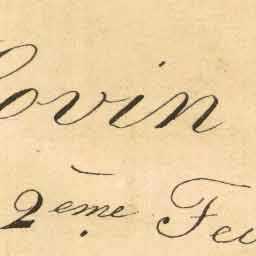 ovin
2ème Feu